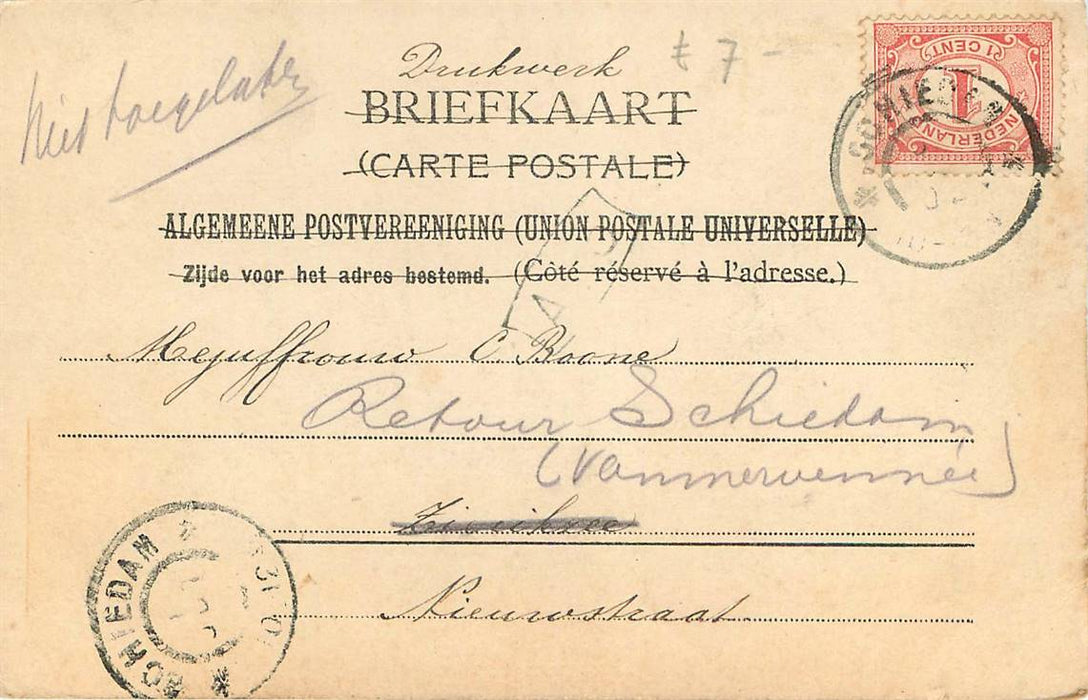 Drukwerk
₤ 7 -
Niet toegelaten
BRIEFKAART
(CARTE POSTALE)
ALGEMEENE POSTVEREENIGING (UNION POSTALE UNIVERSELLE)
Zijde voor het adres bestemd. (Côté réservé à l'adresse.)
1 CENT
1
NEDERLAND
SCHIEDAM
Mejuffrouw C. Boone
Retour Schiedam
(Vommervennée)
Zierikzee
Nieuwstraat
SCHIEDAM